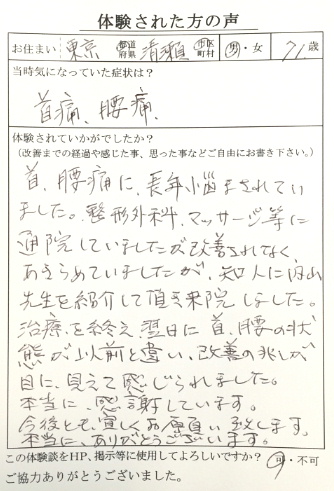 体験された方の声
お住まい 東京 都道府県 清瀬 市区町村 男・女 71歳
当時気になっていた症状は？
首痛、腰痛、
体験されていかがでしたか？
（改善までの経過や感じた事、思った事などご自由にお書き下さい。）
首、腰痛に、長年悩まされてい
ました。整形外科、マッサージ等に
通院していましたが改善されなく、
あきらめていましたが、知人に内山
先生を紹介して頂き来院しました。
治療を終え、翌日に首、腰の状
態が以前と違い、改善の兆しが
目に見えて感じられました。
本当に、感謝しています。
今後とも、宜しくお願い致します。
本当に、ありがとうございます。
この体験談をHP、掲示等に使用してよろしいですか？ 可・不可
ご協力ありがとうございました。